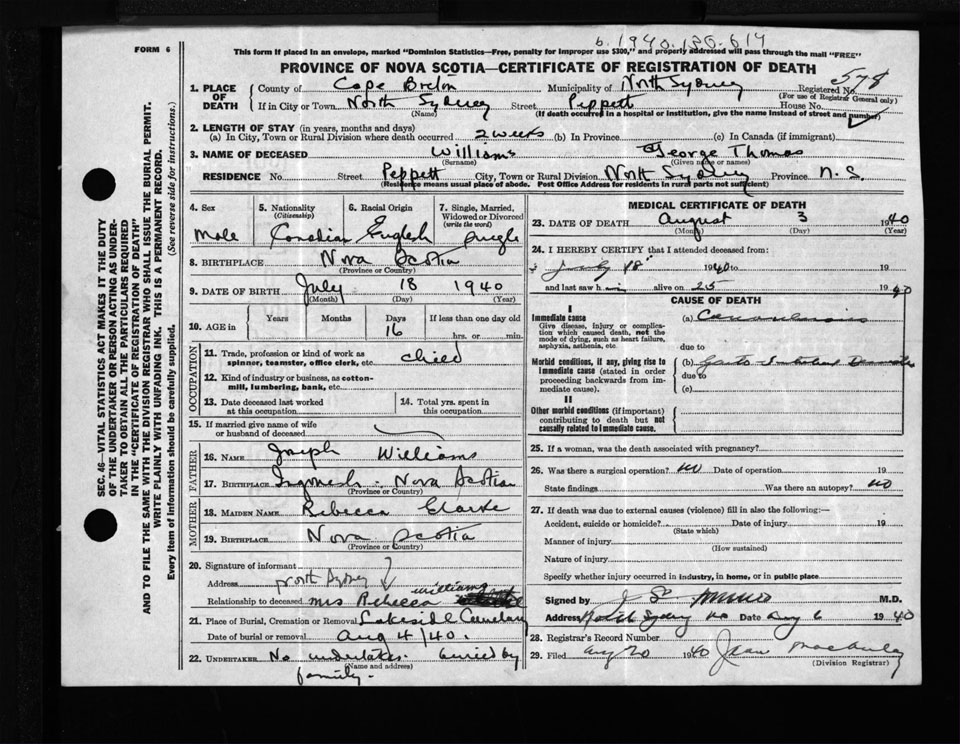 FORM 6
b. 1940. 130. 614
This form if placed in an envelope, marked "Dominion Statistics—Free, penalty for improper use $300," and properly addressed will pass through the mail "FREE"
PROVINCE OF NOVA SCOTIA—CERTIFICATE OF REGISTRATION OF DEATH
578
1. PLACE OF DEATH County of Cape Breton Municipality of North Sydney Registered No.
(For use of Registrar General only)
If in City or Town North Sydney Street Peppett House No.
(Name) (If death occurred in a hospital or institution, give the name instead of street and number)
2. LENGTH OF STAY (in years, months and days)
(a) In City, Town or Rural Division where death occurred 2 weeks (b) In Province (c) In Canada (if immigrant)
3. NAME OF DECEASED Williams George Thomas
(Surname) (Given name or names)
RESIDENCE No. Street Peppett City, Town or Rural Division North Sydney Province N. S.
(Residence means usual place of abode. Post Office Address for residents in rural parts not sufficient)
4. Sex 5. Nationality (Citizenship) 6. Racial Origin 7. Single, Married, Widowed or Divorced (write the word)
Male Canadian English Single
8. BIRTHPLACE Nova Scotia
(Province or Country)
9. DATE OF BIRTH July 18 1940
(Month) (Day) (Year)
10. AGE in Years Months Days If less than one day old
16 hrs. or min.
OCCUPATION
11. Trade, profession or kind of work as spinner, teamster, office clerk, etc. child
12. Kind of industry or business, as cotton-mill, lumbering, bank, etc.
13. Date deceased last worked at this occupation
14. Total yrs. spent in this occupation
15. If married give name of wife or husband of deceased
FATHER
16. NAME Joseph Williams
17. BIRTHPLACE Ingonish - Nova Scotia
(Province or Country)
MOTHER
18. MAIDEN NAME Rebecca Clarke
19. BIRTHPLACE Nova Scotia
(Province or Country)
20. Signature of informant
Address North Sydney
Relationship to deceased Mrs Rebecca Williams
21. Place of Burial, Cremation or Removal Lakeside Cemetary
Date of burial or removal Aug 4/40.
22. UNDERTAKER No undertaker. buried by
(Name and address)
family.
MEDICAL CERTIFICATE OF DEATH
23. DATE OF DEATH August 3 1940
(Month) (Day) (Year)
24. I HEREBY CERTIFY that I attended deceased from:
July 18 1940 to 19
and last saw him alive on 25 1940
CAUSE OF DEATH
I
Immediate cause (a) Convulsions
Give disease, injury or complication which caused death, not the mode of dying, such as heart failure, asphyxia, asthenia, etc.
due to
Morbid conditions, if any, giving rise to immediate cause (stated in order proceeding backwards from immediate cause).
(b) Gastro-Intestinal
due to
(c)
II
Other morbid conditions (if important) contributing to death but not causally related to immediate cause.
25. If a woman, was the death associated with pregnancy?
26. Was there a surgical operation? no Date of operation 19
State findings Was there an autopsy? no
27. If death was due to external causes (violence) fill in also the following:—
Accident, suicide or homicide? Date of injury 19
(State which)
Manner of injury
(How sustained)
Nature of injury
Specify whether injury occurred in industry, in home, or in public place
Signed by M.D.
Address North Sydney NS Date Aug 6 1940
28. Registrar's Record Number
29. Filed Aug 20 1940 Jean
(Division Registrar)
SEC. 46—VITAL STATISTICS ACT MAKES IT THE DUTY
OF THE UNDERTAKER OR PERSON ACTING AS UNDER-
TAKER TO OBTAIN ALL THE PARTICULARS REQUIRED
IN THE "CERTIFICATE OF REGISTRATION OF DEATH"
AND TO FILE THE SAME WITH THE DIVISION REGISTRAR WHO SHALL ISSUE THE BURIAL PERMIT.
WRITE PLAINLY WITH UNFADING INK. THIS IS A PERMANENT RECORD.
Every item of information should be carefully supplied. (See reverse side for instructions.)